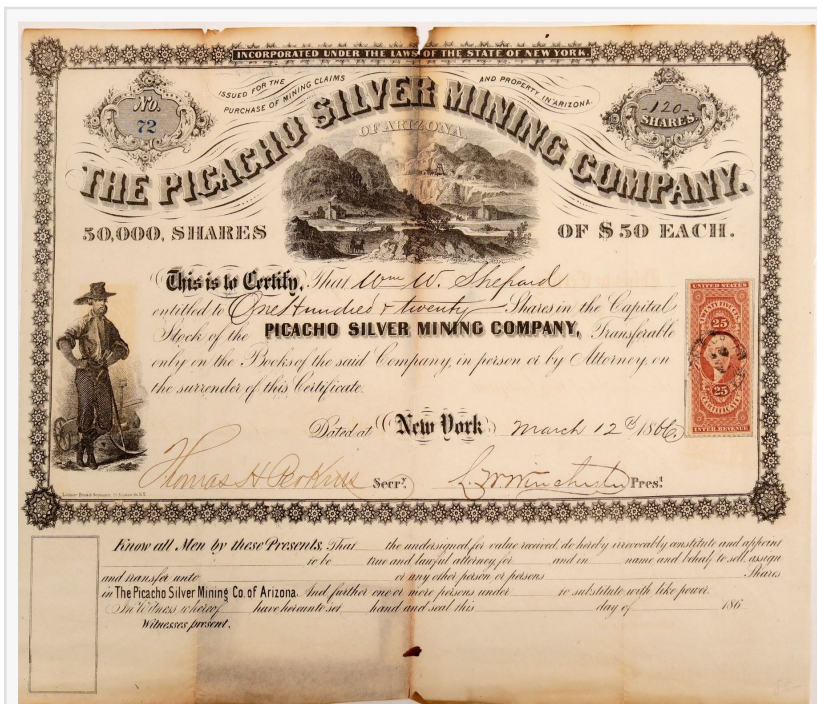 INCORPORATED UNDER THE LAWS OF THE STATE OF NEW YORK.
ISSUED FOR THE PURCHASE OF MINING CLAIMS AND PROPERTY IN ARIZONA.
No. 72
-120- SHARES
THE PICACHO SILVER MINING COMPANY.
OF ARIZONA.
50,000, SHARES OF $50 EACH.
This is to Certify, That Wm W. Shepard
entitled to One Hundred & twenty Shares in the Capital
Stock of the PICACHO SILVER MINING COMPANY, Transferable
only on the Books of the said Company, in person or by Attorney, on
the surrender of this Certificate.
Dated at New York March 12th 1866
Thomas H Perkins Secry. L. W. Winchester Prest
UNITED STATES
25
25
CERTIFICATE
INTER. REVENUE
Know all Men by these Presents, That the undersigned for value received, do hereby irrevocably constitute and appoint
to be true and lawful attorney for and in name and behalf to sell, assign
and transfer unto or any other person or persons Shares
in The Picacho Silver Mining Co. of Arizona. And further one or more persons under to substitute with like power.
In Witness whereof have hereunto set hand and seal this day of 186
Witnesses present.